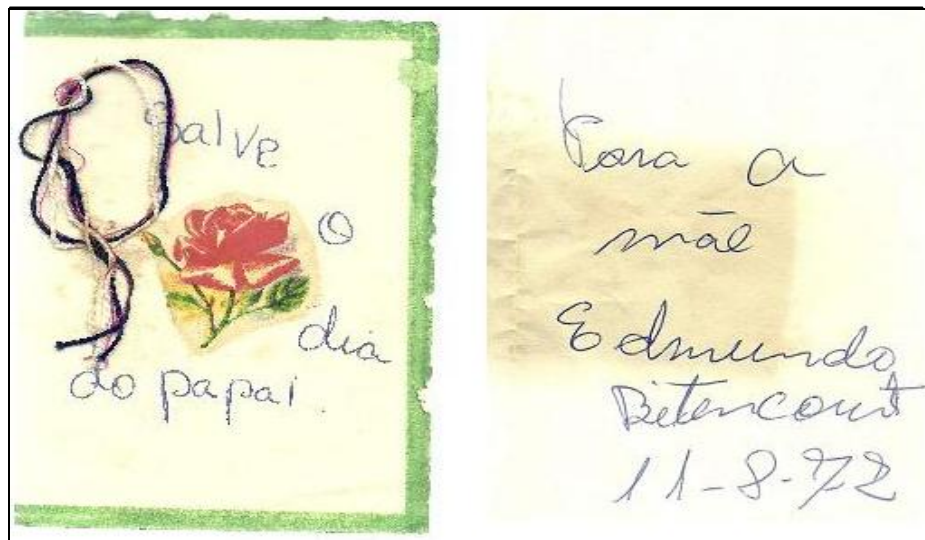 Salve
o
dia
do papai.
Para a
mãe
Edmundo
Bitencourt
11-8-72